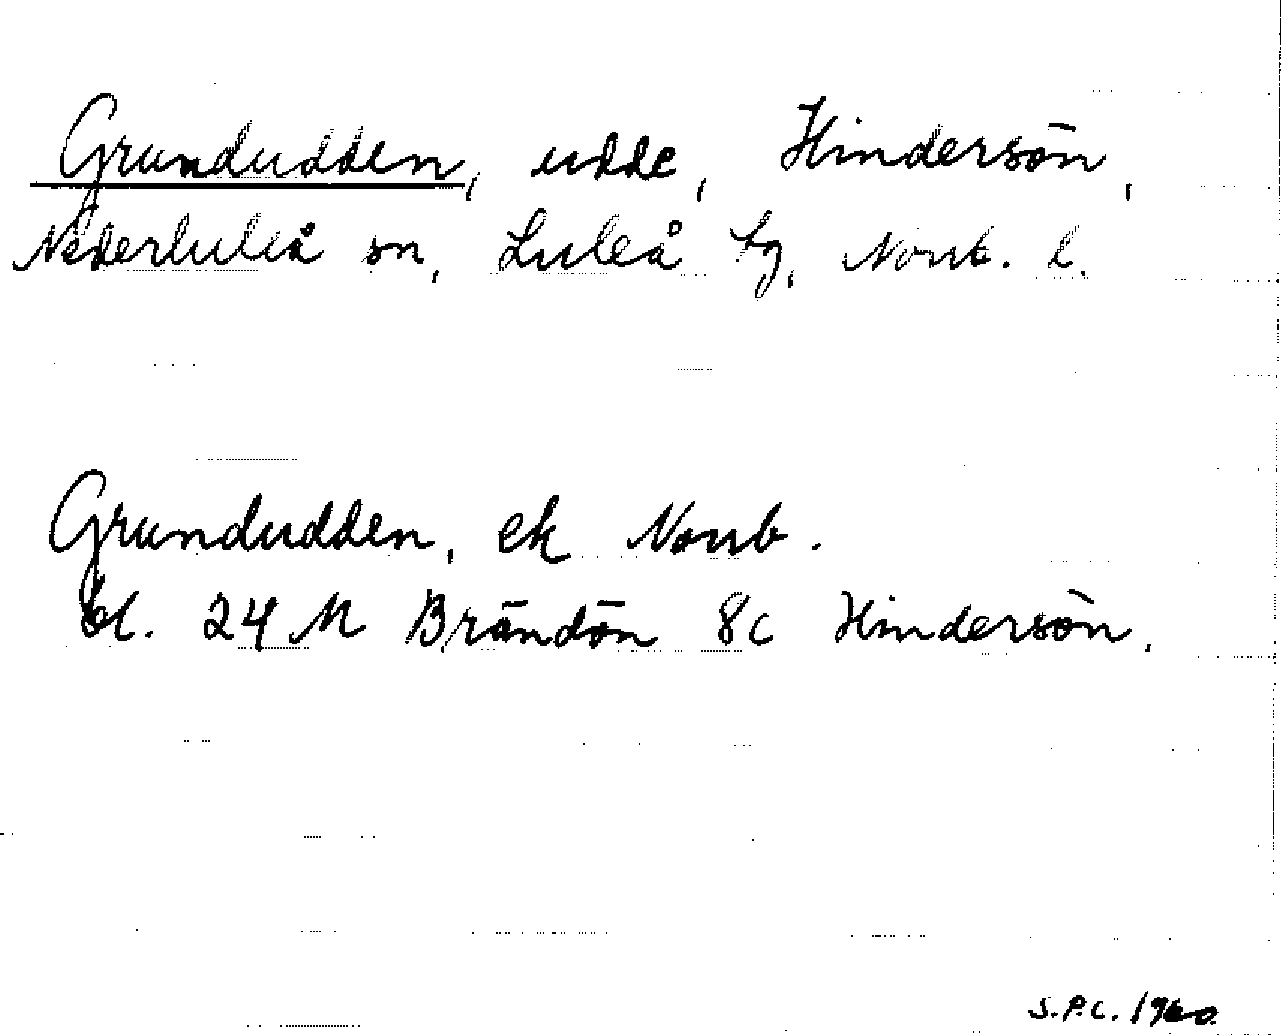 Grundudden, udde, Hindersön,
Nederluleå sn, Luleå tg, Norrb. l.
Grundudden, ek Norrb.
bl. 24 M Brändön 8c Hindersön.
S.P.C. 1960